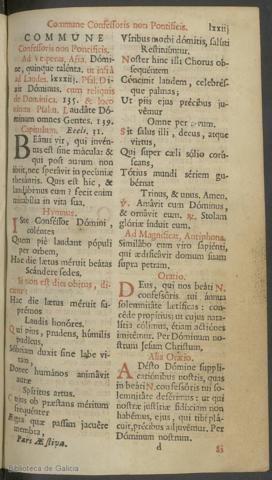 Commune Confessoris non Pontificis.
lxxiij
COMMUNE
Confessoris non Pontificis.
Ad Vesperas, Aña. Dómi-
ne, quinque talénta. ut infrà
ad Laudes. lxxxiij. Psal. Di-
xit Dóminus. cum reliquis
de Dominica. 135. & loco
ultimi Psalm. Laudáte Dó-
minum omnes Gentes. 139.
Capitulum. Eccli. 31.
BEátus vir, qui invén-
tus est sine mácula: &
qui post aurum non
ábiit, nec sperávit in pecúniæ
thesáuris. Quis est hic, &
laudábimus eum? fecit enim
mirabília in vita sua.
Hymnus.
ISte Conféssor Dómini,
coléntes
Quem piè laudant pópuli
per orbem,
Hac die lætus méruit beátas
Scándere sedes.
Si non est dies obitus, di-
catur:
Hac die lætus méruit su-
prémos
Laudis honóres.
Qui pius, prudens, húmilis
pudícus,
Sóbriam duxit sine labe vi-
tam,
Donec humános animávit
auræ
Spíritus artus.
Cujus ob præstans méritum
frequénter
Ægra quæ passim jacuére
membra
Pars Æstiva.
Viribus morbi dómitis, salúti
Restituúntur.
Noster hinc illi Chorus ob-
sequéntem
Cóncinit laudem, celebrés-
que palmas;
Ut piis ejus précibus ju-
vémur
Omne per ævum.
Sit salus illi, decus, atque
virtus,
Qui super cæli sólio corús-
cans,
Tótius mundi sériem gu-
bérnat
Trinus, & unus. Amen,
℣. Amávit eum Dóminus,
& ornávit eum. ℟. Stolam
glóriæ índuit eum.
Ad Magnificat, Antiphona.
Similábo eum viro sapiénti,
qui ædificávit domum suam
supra petram.
Oratio.
DEus, qui nos beáti N.
confessóris tui ánnua
solemnitáte lætíficas: con-
céde propítius; ut cujus nata-
lítia cólimus, étiam actiónes
imitémur. Per Dóminum no-
strum Jesum Christum,
Alia Oratio.
ADésto Dómine suppli-
catiónibus nostris, quas
in beáti N. confessóris tui so-
lemnitáte deférimus: ut qui
nostræ justítiæ fidúciam non
habémus, ejus, qui tibi plá-
cuit, précibus adjuvémur. Per
Dóminum.
d
Si
Biblioteca de Galicia